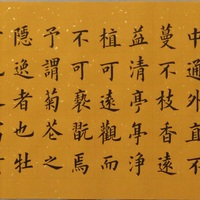 中通外直不
蔓不枝香遠
益清亭亭淨
植可遠觀而
不可褻翫焉
予謂菊花之
隱逸者也牡